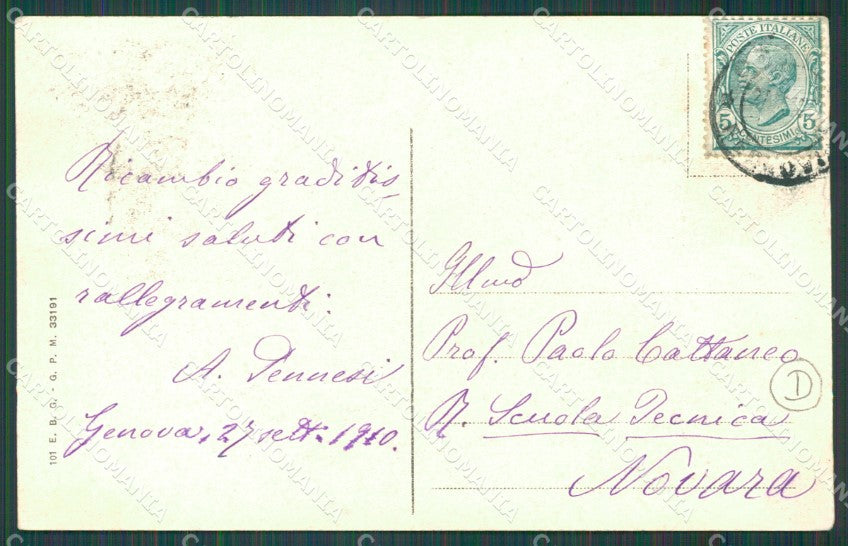 Ricambio graditis-
simi saluti con
rallegramenti.
A. Pennesi
Genova, 27 sett. 1910.
101 E. B. G. - G. P. M. 33191
POSTE ITALIANE
5 CENTESIMI 5
Illmo
Prof. Paolo Cattaneo
R. Scuola Tecnica
Novara
D
CARTOLINOMANIA